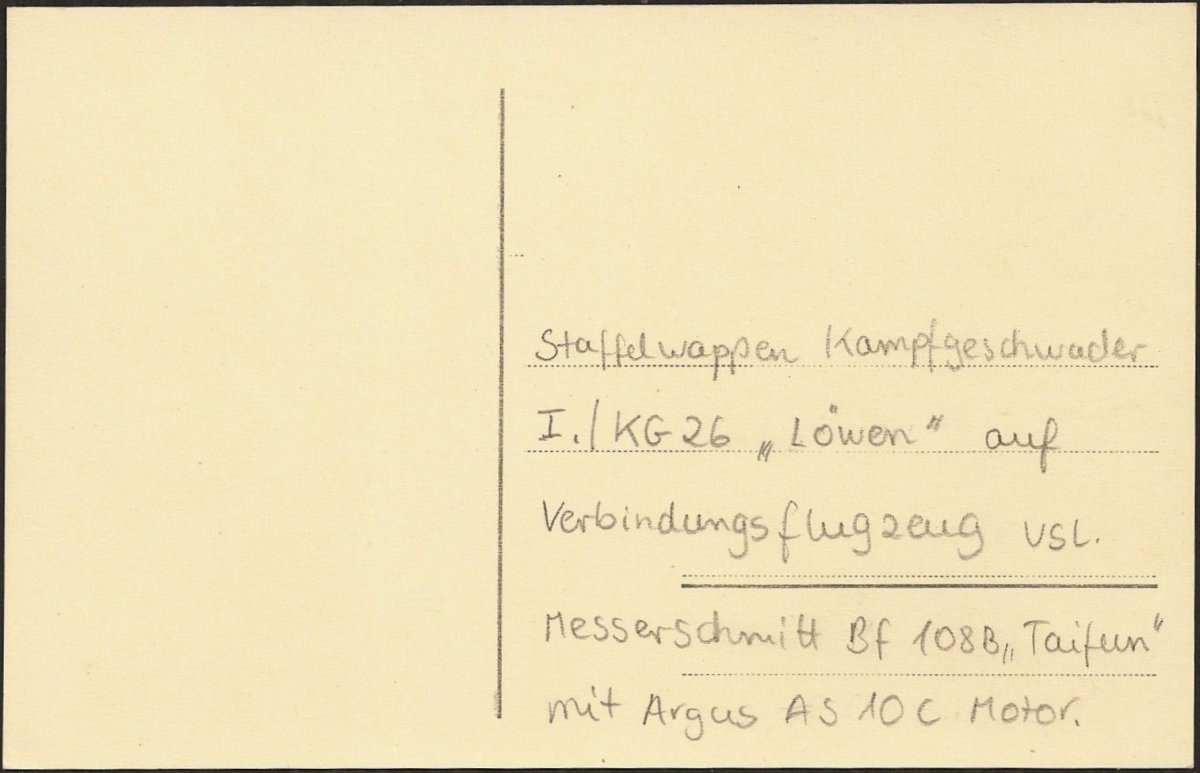 Staffelwappen Kampfgeschwader
I./KG 26 „Löwen" auf
Verbindungsflugzeug vsl.
Messerschmitt Bf 108B „Taifun"
mit Argus AS 10 C Motor.